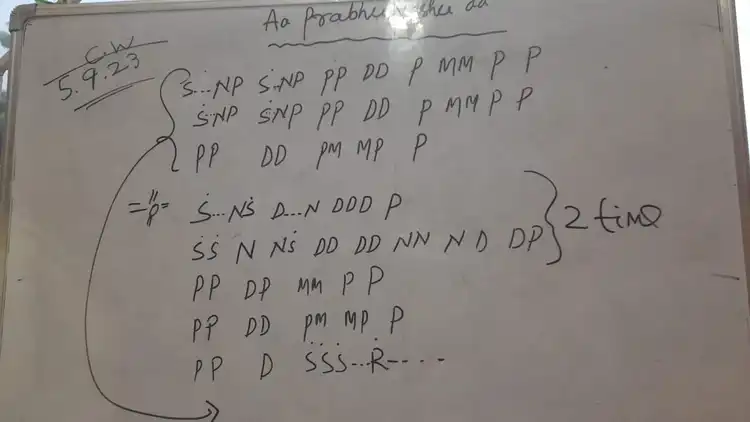 Aa Prabhu
C.W
5.9.23
Ṡ...NP Ṡ.NP PP DD P MM P P
ṠNP ṠNP PP DD P MM P P
PP DD PM MP P
=P= Ṡ...NṠ D...N DDD P
ṠṠ N NṠ DD DD NN N D DP } 2 time
PP DP MM P P
PP DD PM MP P
PP D ṠṠṠ...Ṙ----